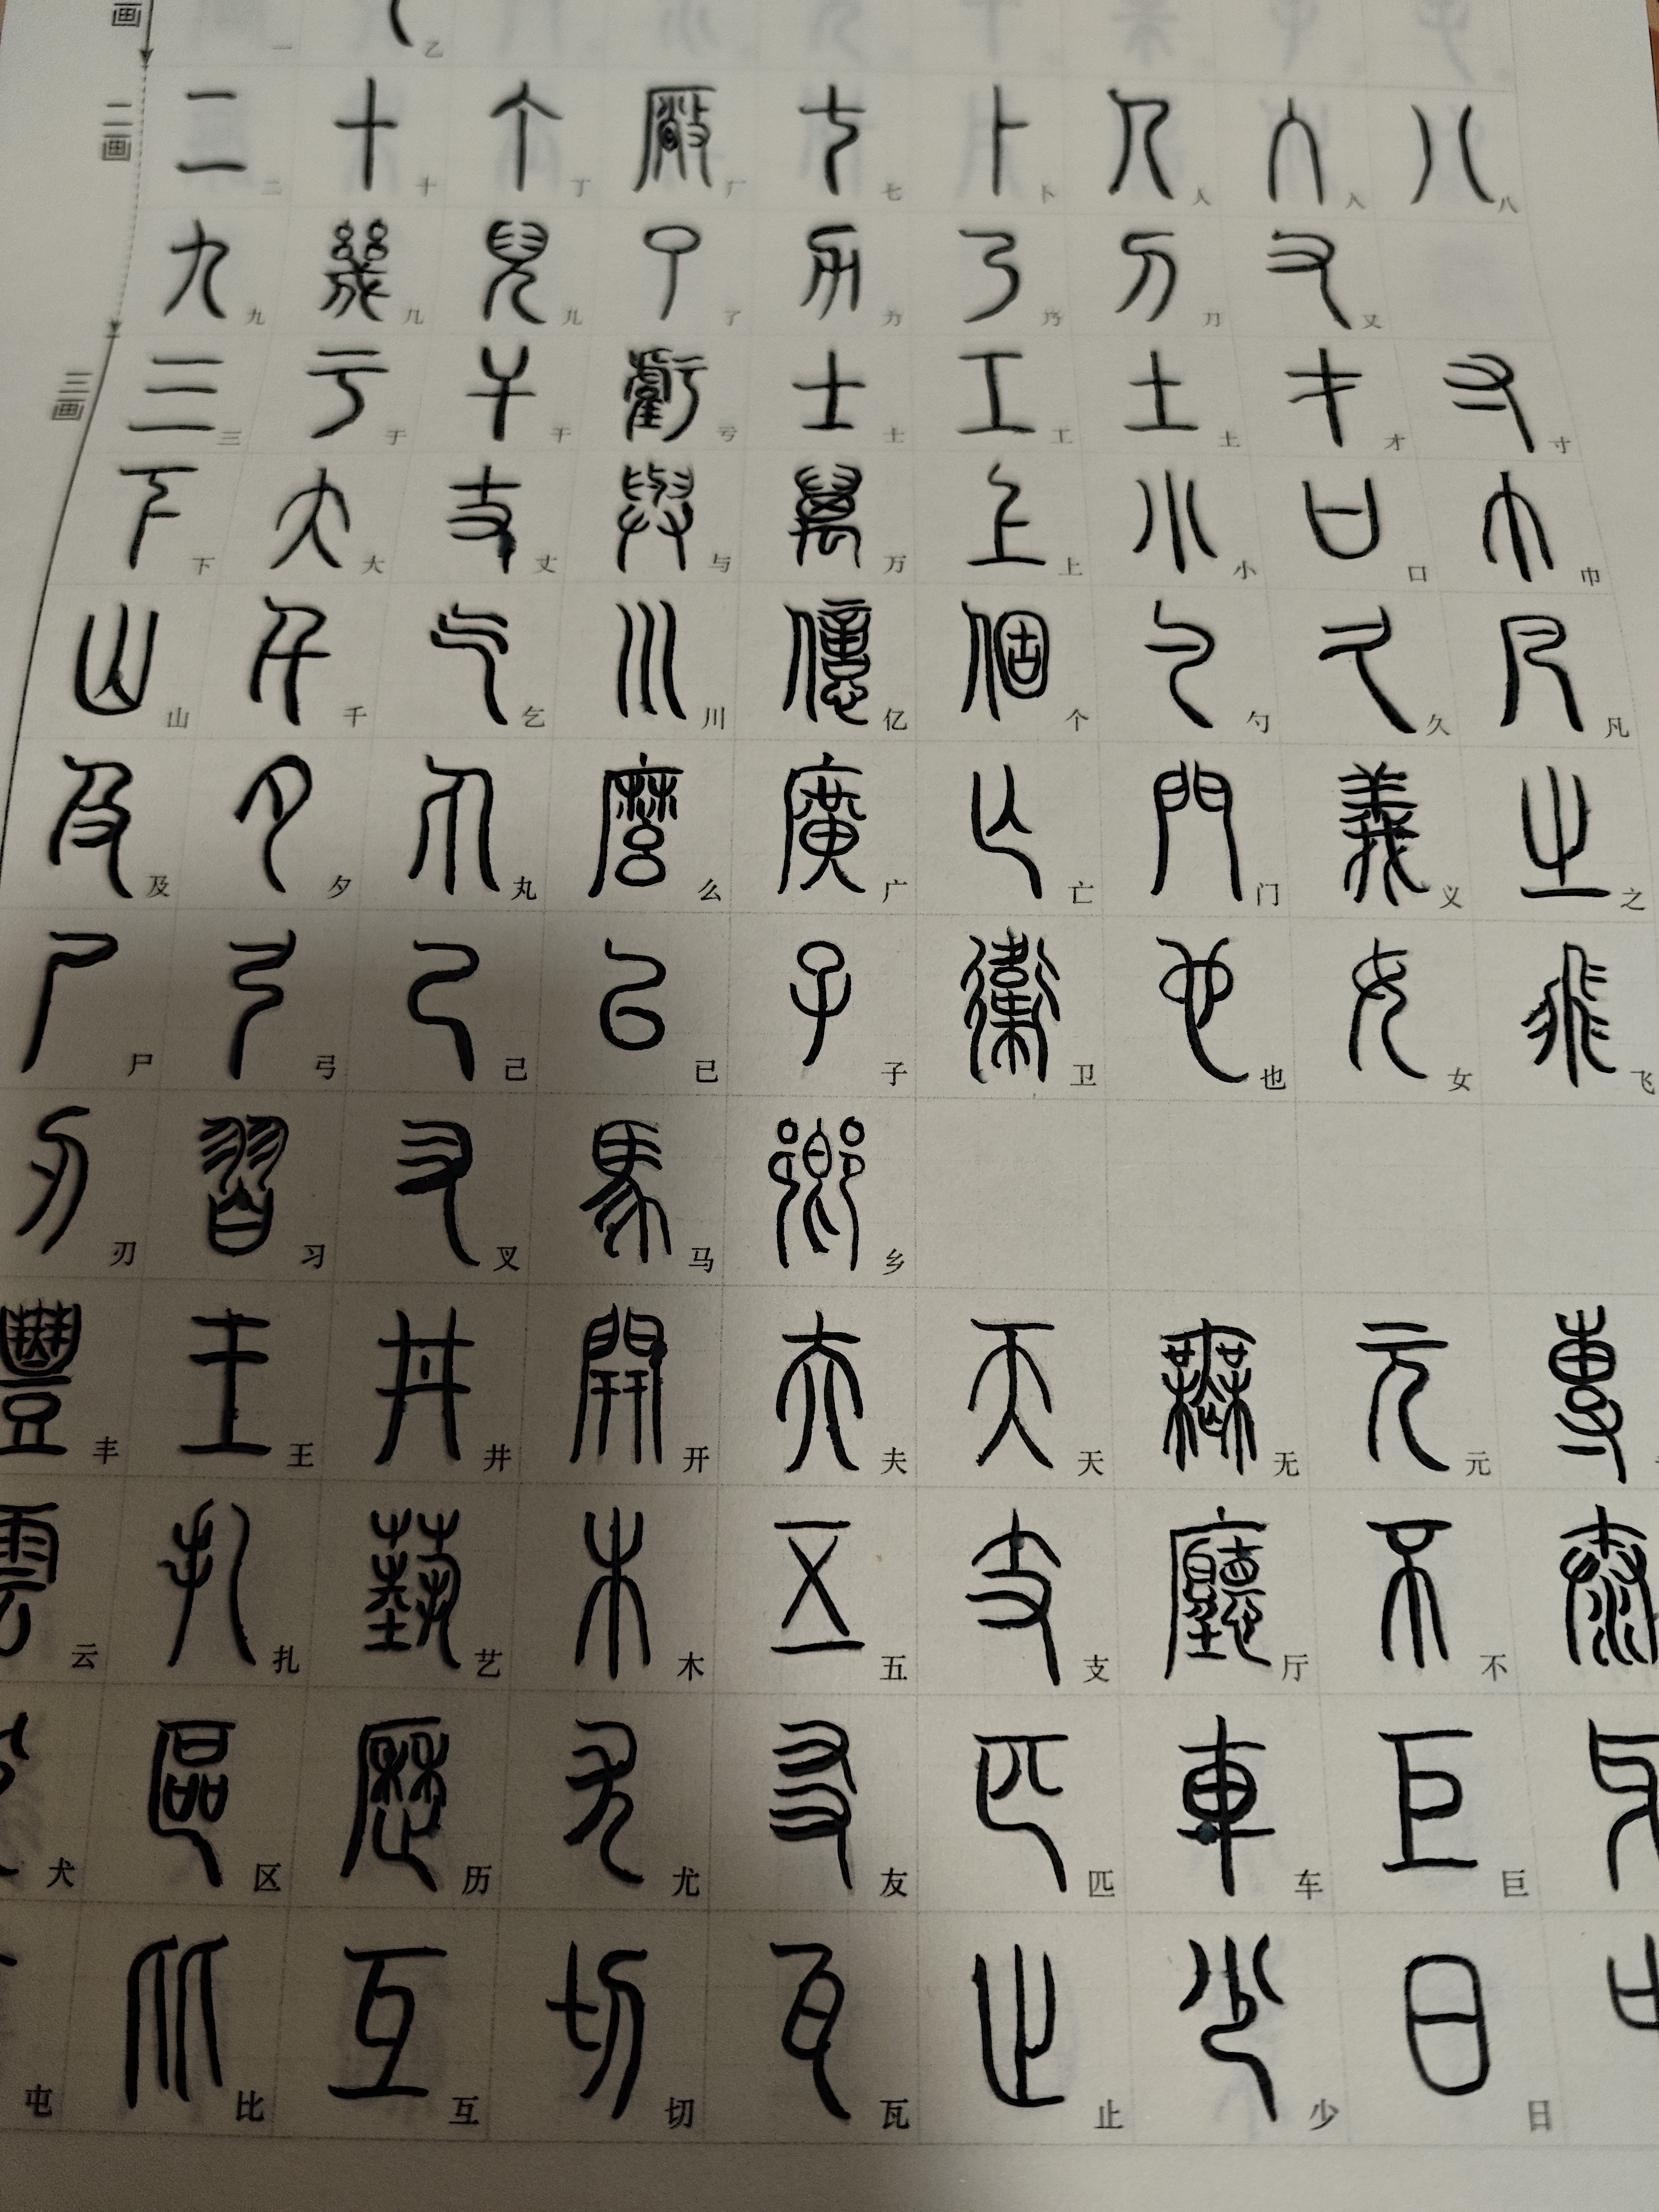 画 一 乙
二画 二 十 丁 厂 七 卜 人 入 八
九 几 儿 了 乃 刀 又
三画 三 于 干 亏 士 工 土 才 寸
下 大 丈 与 万 上 小 口 巾
山 千 乞 川 亿 个 勺 久 凡
及 夕 丸 么 广 亡 门 义 之
尸 弓 己 已 子 卫 也 女 飞
刃 习 叉 马 乡
丰 王 井 开 夫 天 无 元
云 扎 艺 木 五 支 厅 不
犬 区 历 尤 友 匹 车 巨
屯 比 互 切 瓦 止 少 日